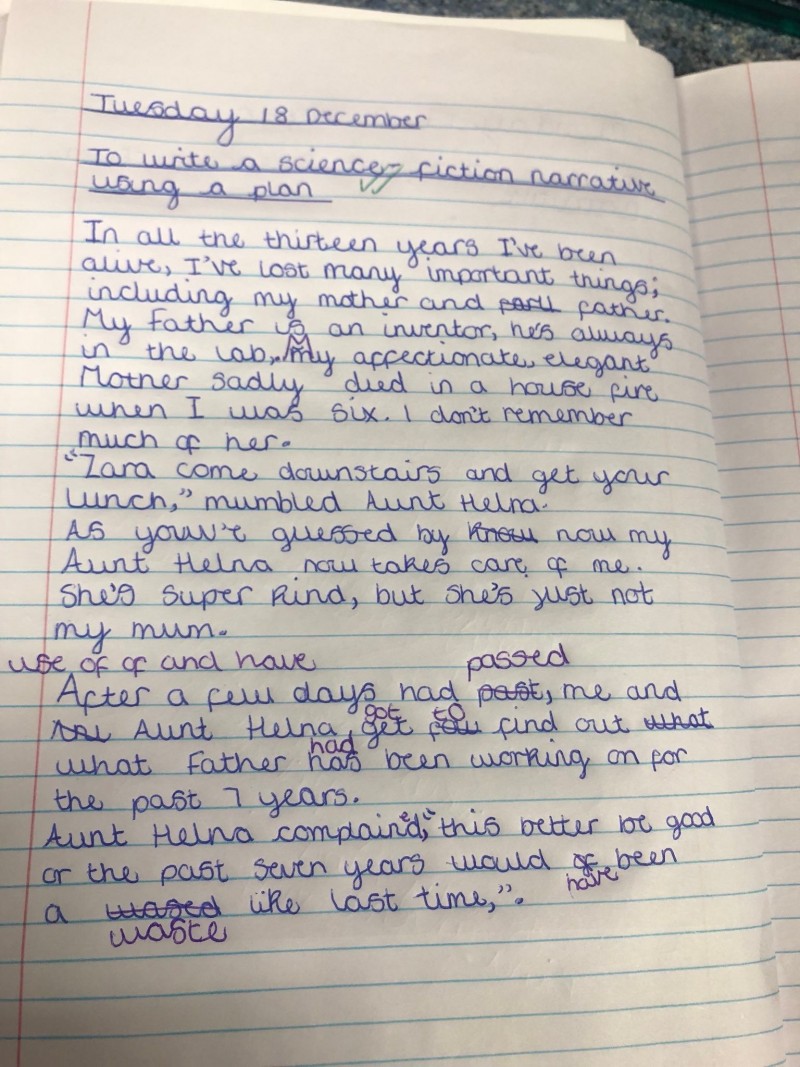 Tuesday 18 December
To write a science-fiction narrative
using a plan
In all the thirteen years I've been
alive, I've lost many important things;
including my mother and father.
My Father is an inventor, he's always
in the lab. My affectionate, elegant
Mother sadly died in a house fire
when I was six. I don't remember
much of her.
"Zara come downstairs and get your
lunch," mumbled Aunt Helna.
As youv'e guessed by know now my
Aunt Helna now takes care of me.
She's super kind, but she's just not
my mum.
use of of and have
passed
After a few days had past, me and
Aunt Helna, get find out what
got to
had
what Father has been working on for
the past 7 years.
Aunt Helna complained, "this better be good
or the past seven years would of been
have
a wased like last time,".
waste